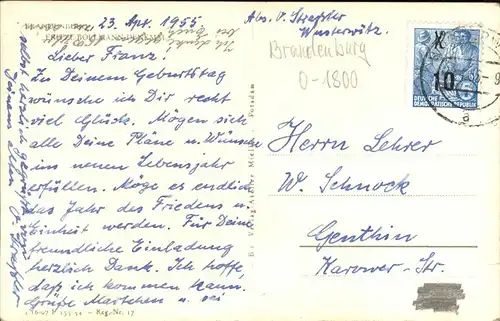 23. Apr. 1955
Lieber Franz!
Zu Deinem Geburtstag
wünsche ich Dir recht
viel Glück. Mögen sich
alle Deine Pläne u. Wünsche
im neuen Lebensjahr
erfüllen. Möge es endlich
das Jahr des Friedens u.
Einheit werden. Für Deine
freundliche Einladung
herzlich Dank. Ich hoffe,
daß ich kommen kann.
Grüße Martchen u. sei
Abs. O. Straßter
Wusterwitz
Brandenburg
0-1800
10
DEUTSCHE
DEMOKRATISCHE REPUBLIK
Herrn Lehrer
W. Schnock
Genthin
Karower-Str.
Reg.-Nr. 17